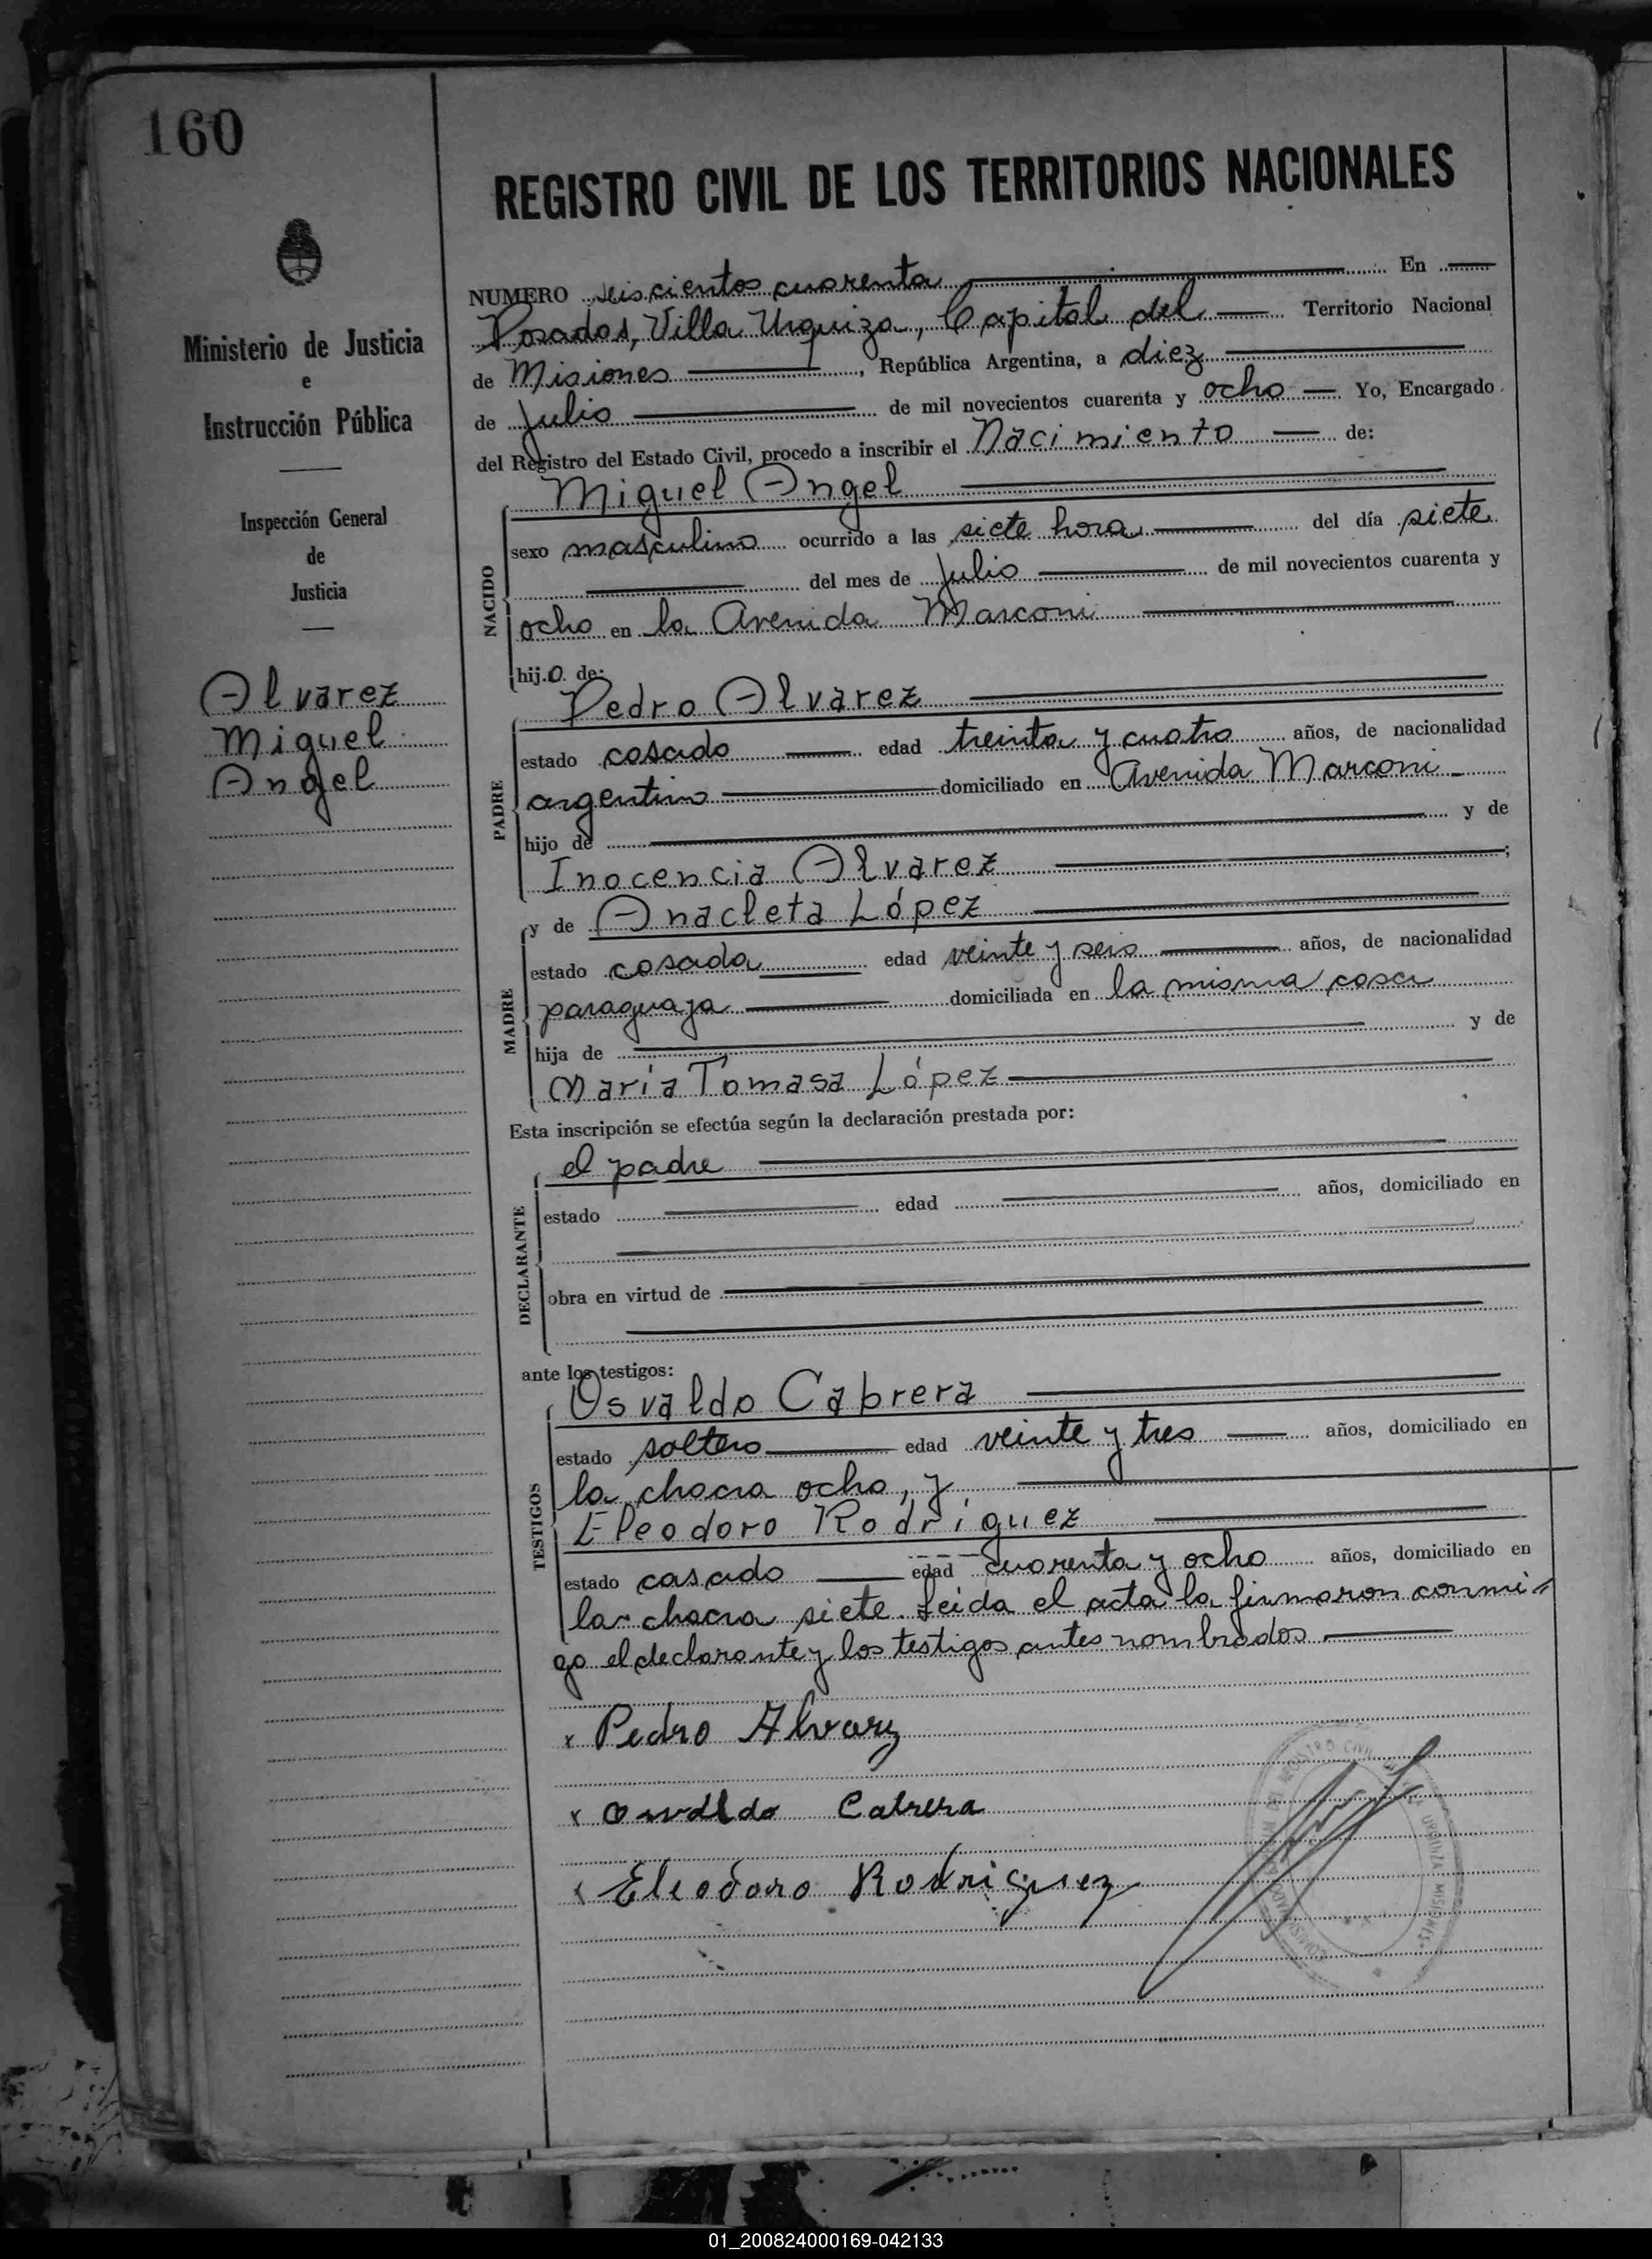 160
REGISTRO CIVIL DE LOS TERRITORIOS NACIONALES
Ministerio de Justicia
e
Instrucción Pública
Inspección General
de
Justicia
Alvarez
Miguel
Angel
NUMERO seiscientos cuarenta En
Posadas, Villa Urquiza, Capital del Territorio Nacional
de Misiones, República Argentina, a diez
de Julio de mil novecientos cuarenta y ocho Yo, Encargado
del Registro del Estado Civil, procedo a inscribir el Nacimiento de:
NACIDO
Miguel Angel
sexo masculino ocurrido a las siete hora del día siete
del mes de Julio de mil novecientos cuarenta y
ocho en la Avenida Marconi
hijo de:
PADRE
Pedro Alvarez
estado casado edad treinta y cuatro años, de nacionalidad
argentino domiciliado en Avenida Marconi
hijo de y de
Inocencia Alvarez;
MADRE
y de Anacleta López
estado casada edad veinte y seis años, de nacionalidad
paraguaya domiciliada en la misma casa
hija de y de
María Tomasa López
Esta inscripción se efectúa según la declaración prestada por:
DECLARANTE
el padre
estado edad años, domiciliado en
obra en virtud de
ante los testigos:
TESTIGOS
Osvaldo Cabrera
estado soltero edad veinte y tres años, domiciliado en
la chacra ocho, y
Eleodoro Rodríguez
estado casado edad cuarenta y ocho años, domiciliado en
la chacra siete. Leída el acta la firmaron conmi-
go el declarante y los testigos antes nombrados
x Pedro Alvarez
x Osvaldo Cabrera
x Eleodoro Rodriguez
REGISTRO CIVIL URQUIZA MISIONES
01_200824000169-042133